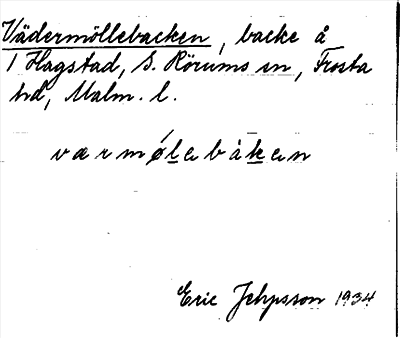 Vädermöllebacken, backe å
1 Hagstad, S. Rörums sn, Frosta
hd, Malm. l.
værmølebåken
Eric Jehpsson 1934